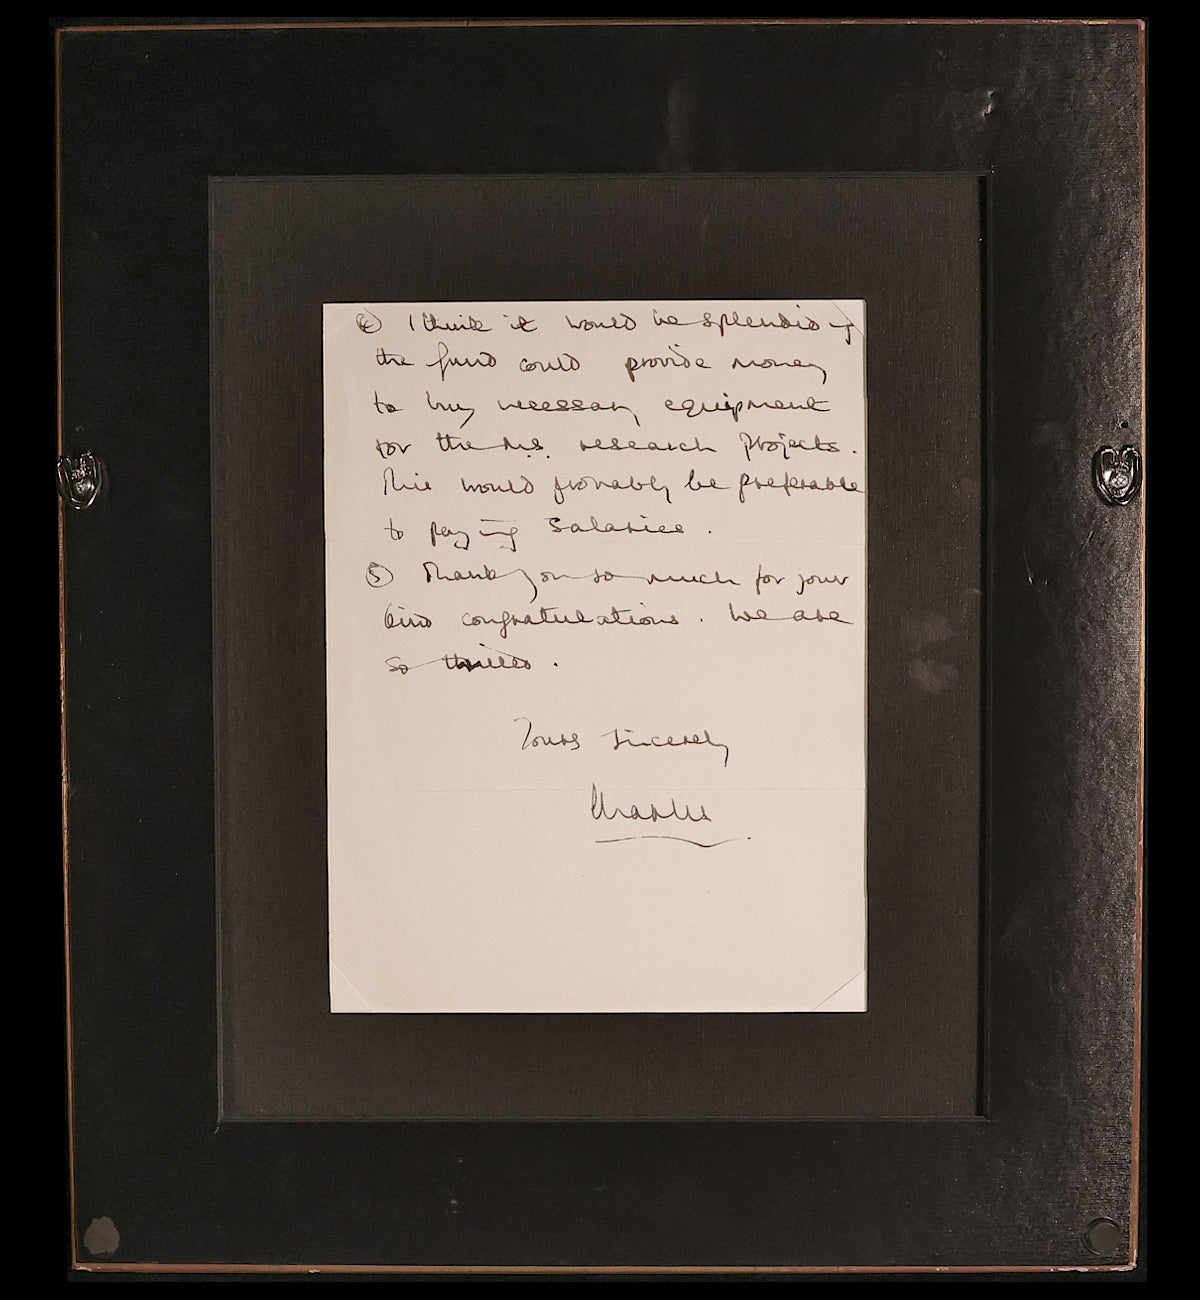 ④ I think it would be splendid if
the fund could provide money
to buy necessary equipment
for the M.S. research projects.
This would probably be preferable
to paying salaries.
⑤ Thank you so much for your
kind congratulations. We are
so thrilled.
Yours sincerely
Charles